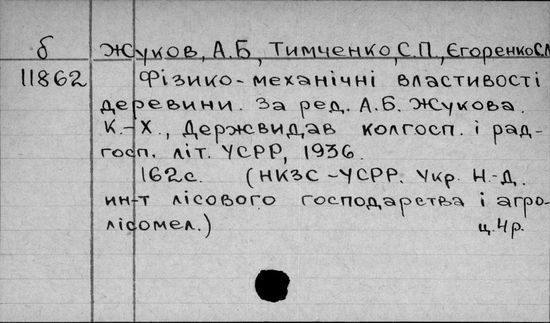 б Жуков, А.Б, Тимченко, С.П., Єгоренко С.М
11862 Фізико-механічні властивості
деревини. За ред. А.Б. Жукова.
К.-Х., Держвидав колгосп. і рад-
госп. літ. УСРР, 1936.
162с. (НКЗС-УСРР. Укр. Н.-Д.
ин-т лісового господарства і агро-
лісомел.) ц.4р.